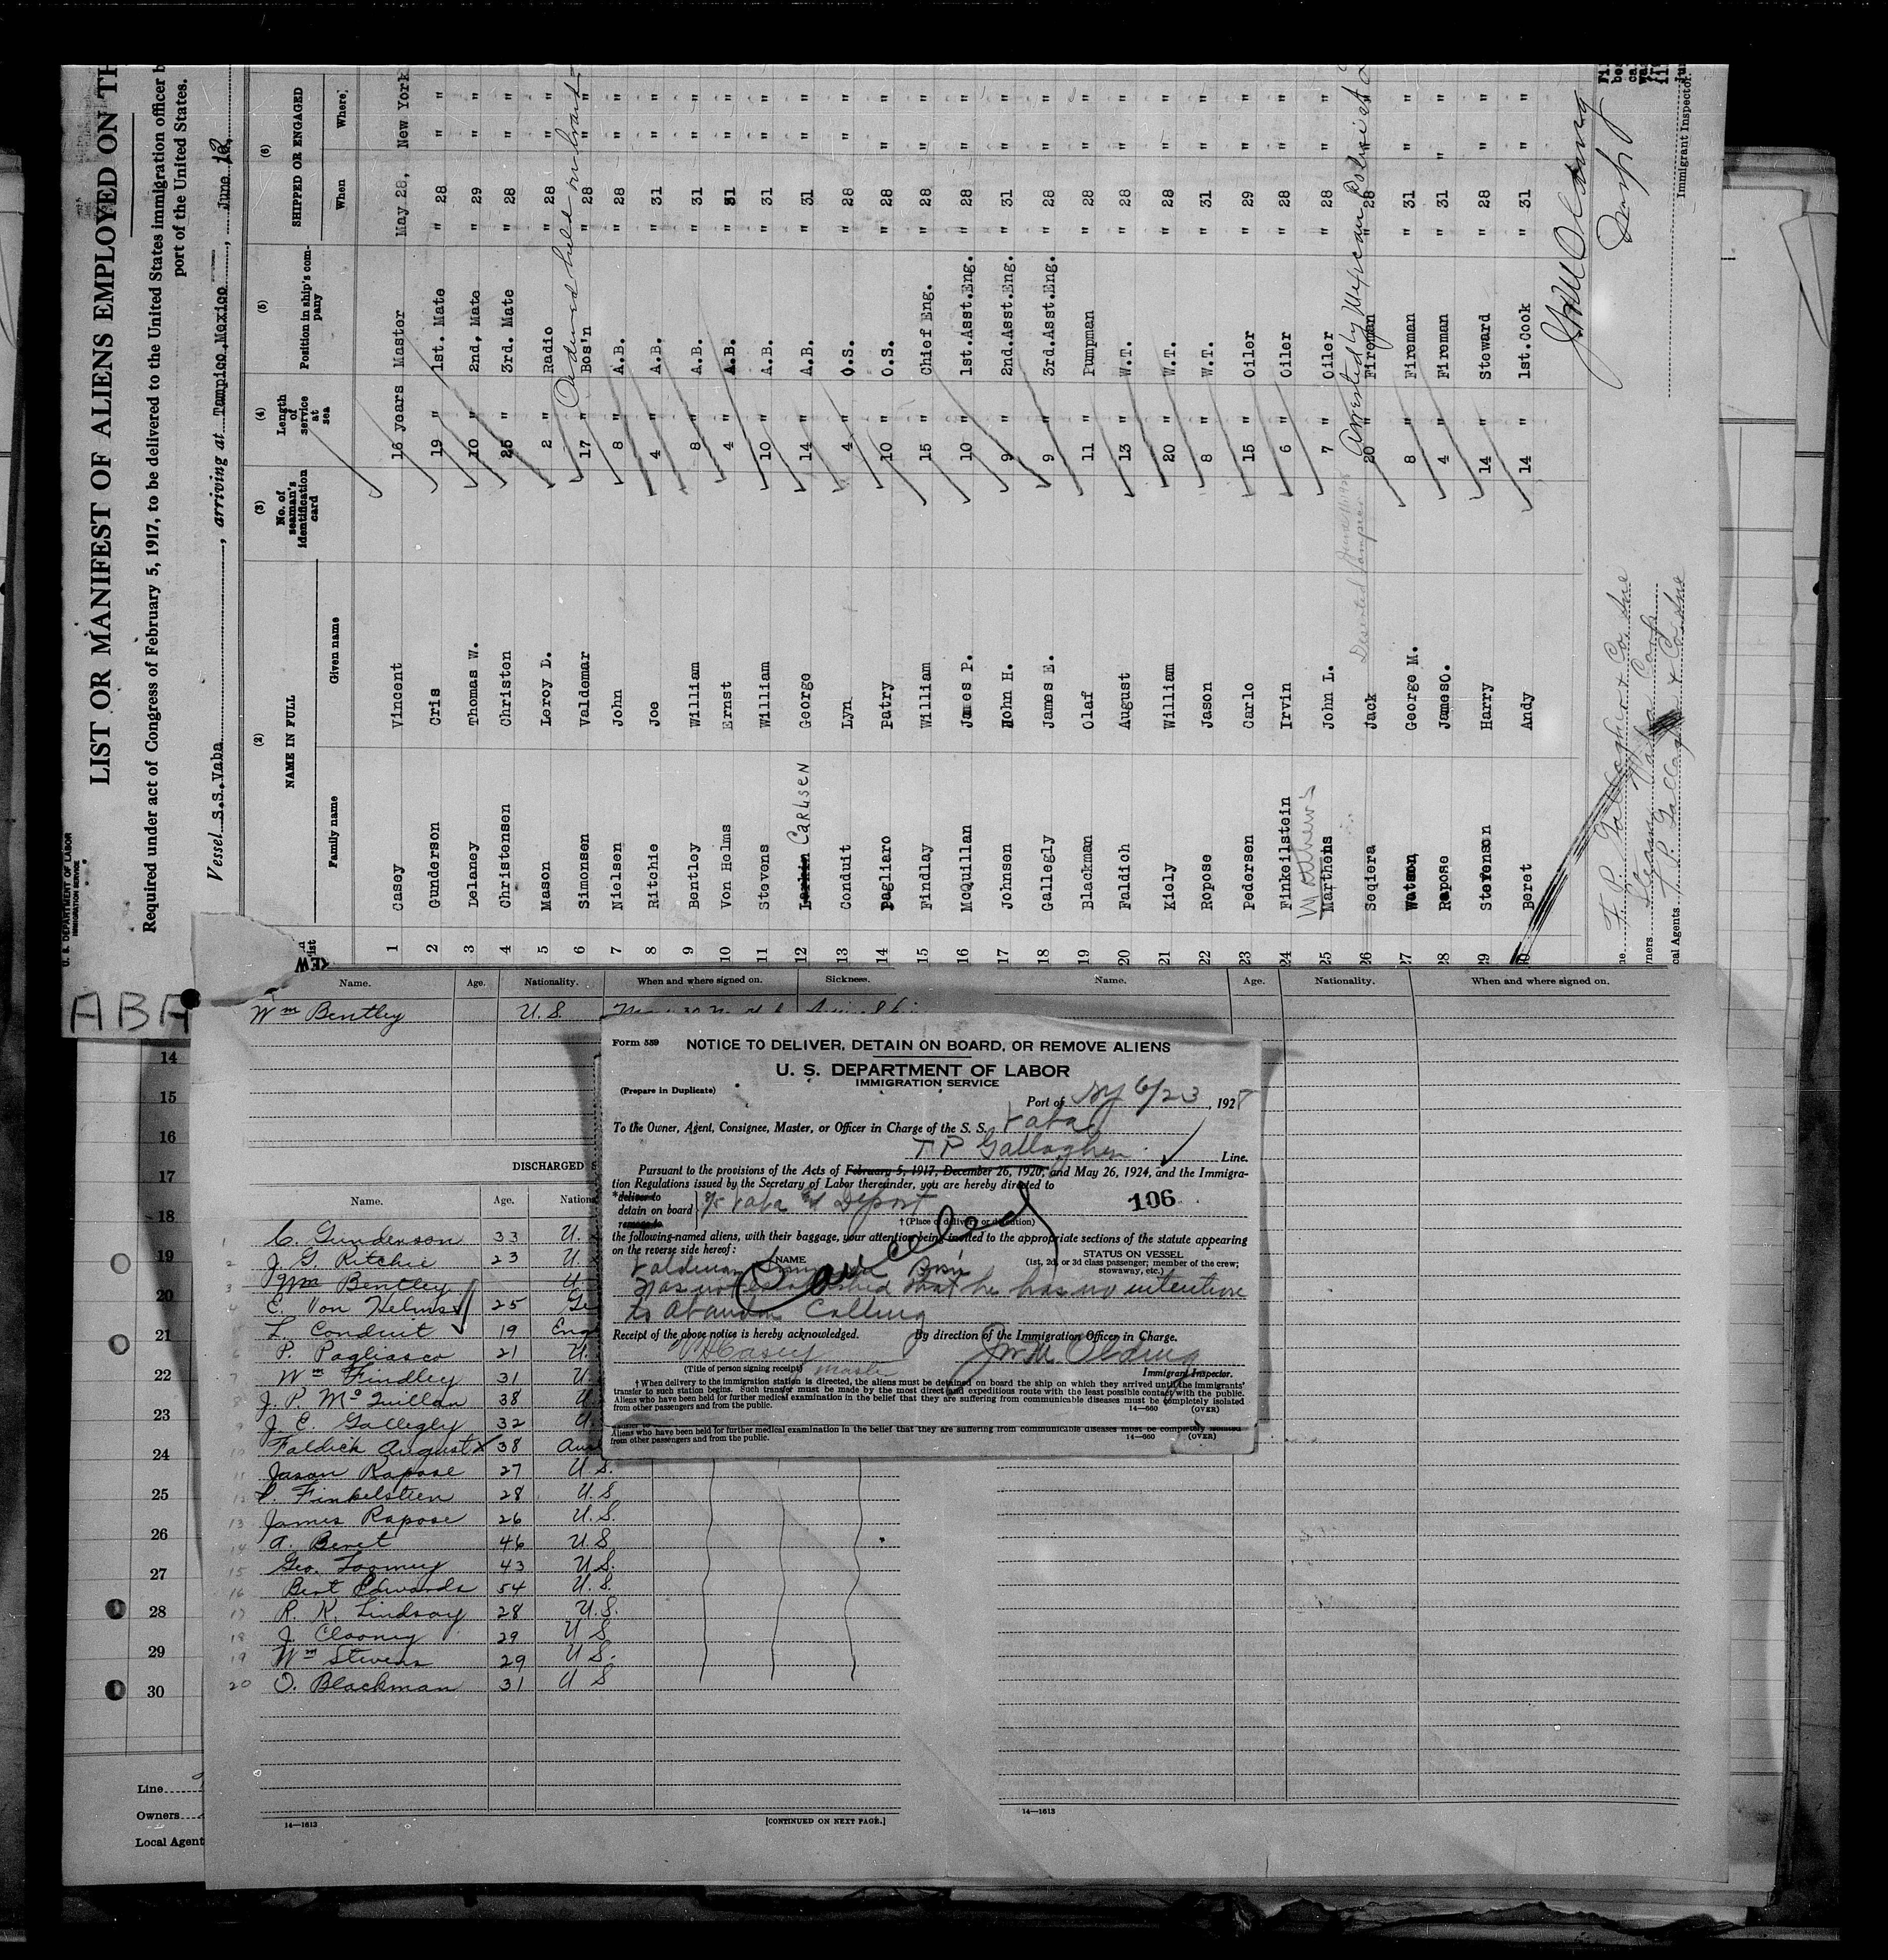 U. S. DEPARTMENT OF LABOR
IMMIGRATION SERVICE
LIST OR MANIFEST OF ALIENS EMPLOYED ON TH
Required under act of Congress of February 5, 1917, to be delivered to the United States immigration officer b
port of the United States.
Vessel S.S.Vaba, arriving at Tampico,Mexico, June
(2) NAME IN FULL (3) No. of seaman's identification card (4) Length of service at sea (5) Position in ship's company (6) SHIPPED OR ENGAGED
Family name Given name When Where
1 Casey Vincent 16 years Master May 28, New York
2 Gunderson Cris 19 " 1st. Mate " 28 " "
3 Delaney Thomas W. 10 " 2nd. Mate " 29 " "
4 Christensen Christen 25 " 3rd. Mate " 28 " "
5 Mason Leroy L. 2 " Radio " 28 " "
6 Simonsen Valdemar 17 " Bos'n " 28 " "
Ordered held on board
7 Nielsen John 8 " A.B. " 28 " "
8 Ritchie Joe 4 " A.B. " 31 " "
9 Bentley William 8 " A.B. " 31 " "
10 Von Helms Ernst 4 " A.B. " 31 " "
11 Stevens William 10 " A.B. " 31 " "
12 Larkin CARLSEN George 14 " A.B. " 31 " "
13 Conduit Lyn 4 " O.S. " 28 " "
14 Pagliaro Patry 10 " O.S. " 28 " "
15 Findlay William 15 " Chief Eng. " 28 " "
16 McQuillan James P. 10 " 1st.Asst.Eng. " 28 " "
17 Johnsen John H. 9 " 2nd.Asst.Eng. " 31 " "
18 Gallegly James E. 9 " 3rd.Asst.Eng. " 28 " "
19 Blackman Olaf 11 " Pumpman " 28 " "
20 Faldich August 13 " W.T. " 28 " "
21 Kiely William 20 " W.T. " 28 " "
22 Ropose Jason 8 " W.T. " 31 " "
23 Pedersen Carlo 15 " Oiler " 29 " "
24 Finkeilstein Irvin 6 " Oiler " 28 " "
Matthews
25 Marthens John L. 7 " Oiler " 28 " "
Deserted Tampico Arrested by Mexican Police at
26 Seqiera Jack 20 " Fireman " 28 " "
27 Watson, George M. 8 " Fireman " 31 " "
28 Rapose James O. 4 " Fireman " 31 " "
29 Stevenson Harry 14 " Steward " 28 " "
30 Beret Andy 14 " 1st.Cook " 31 " "
T. P. Gallagher & Co. Inc
Vaba Corp
cal Agents T. P. Gallagher & Co. Inc
Immigrant Inspector.
ABA
Name. Age. Nationality. When and where signed on. Sickness. Name. Age. Nationality. When and where signed on.
Wm Bentley U.S.
DISCHARGED
Name. Age. Nation
1 C. Gunderson 33 U.
2 J. G. Ritchie 23 U.
3 Wm Bentley U
4 E. Von Helms 25 Ge
5 L. Conduit 19 Eng
6 P. Pagliasco 21 U.
7 Wm Findley 31 U
8 J. P. McQuillan 38 U
9 J. E. Gallegly 32 U.
10 Faldich August x 38 Aus
11 Jason Rapose 27 U S.
12 I. Finkelstien 28 U.S
13 James Rapose 26 U.S.
14 A. Beret 46 U.S
15 Geo. Toomey 43 U.S.
16 Bert Edwards 54 U.S.
17 R. K. Lindsay 28 U.S.
18 J. Clooney 29 U S
19 Wm Stevens 29 U S.
20 O. Blackman 31 U S
14—1613 [CONTINUED ON NEXT PAGE.] 14—1613
14
15
16
17
18
19
20
21
22
23
24
25
26
27
28
29
30
Line
Owners
Local Agent
Form 559 NOTICE TO DELIVER, DETAIN ON BOARD, OR REMOVE ALIENS
U. S. DEPARTMENT OF LABOR
IMMIGRATION SERVICE
(Prepare in Duplicate)
Port of NY 6/23, 1928
To the Owner, Agent, Consignee, Master, or Officer in Charge of the S. S. Vaba
T P Gallagher Line.
Pursuant to the provisions of the Acts of February 5, 1917, December 26, 1920, and May 26, 1924, and the Immigra-
tion Regulations issued by the Secretary of Labor thereunder, you are hereby directed to
*deliver to
detain on board
remove to
S/S Vaba & Deport 106
† (Place of delivery or detention)
the following-named aliens, with their baggage, your attention being invited to the appropriate sections of the statute appearing
on the reverse side hereof:
NAME STATUS ON VESSEL
(1st, 2d, or 3d class passenger; member of the crew; stowaway, etc.)
Cancelled
Valdemar Simonsen Bosn
Has not established that he has no intention
to abandon Calling
Receipt of the above notice is hereby acknowledged. By direction of the Immigration Officer in Charge.
V Casey
(Title of person signing receipt) master
Immigrant Inspector.
† When delivery to the immigration station is directed, the aliens must be detained on board the ship on which they arrived until the immigrants'
transfer to such station begins. Such transfer must be made by the most direct and expeditious route with the least possible contact with the public.
Aliens who have been held for further medical examination in the belief that they are suffering from communicable diseases must be completely isolated
from other passengers and from the public. 14—660 (OVER)
Aliens who have been held for further medical examination in the belief that they are suffering from communicable diseases must be completely isolated
from other passengers and from the public. 14—660 (OVER)